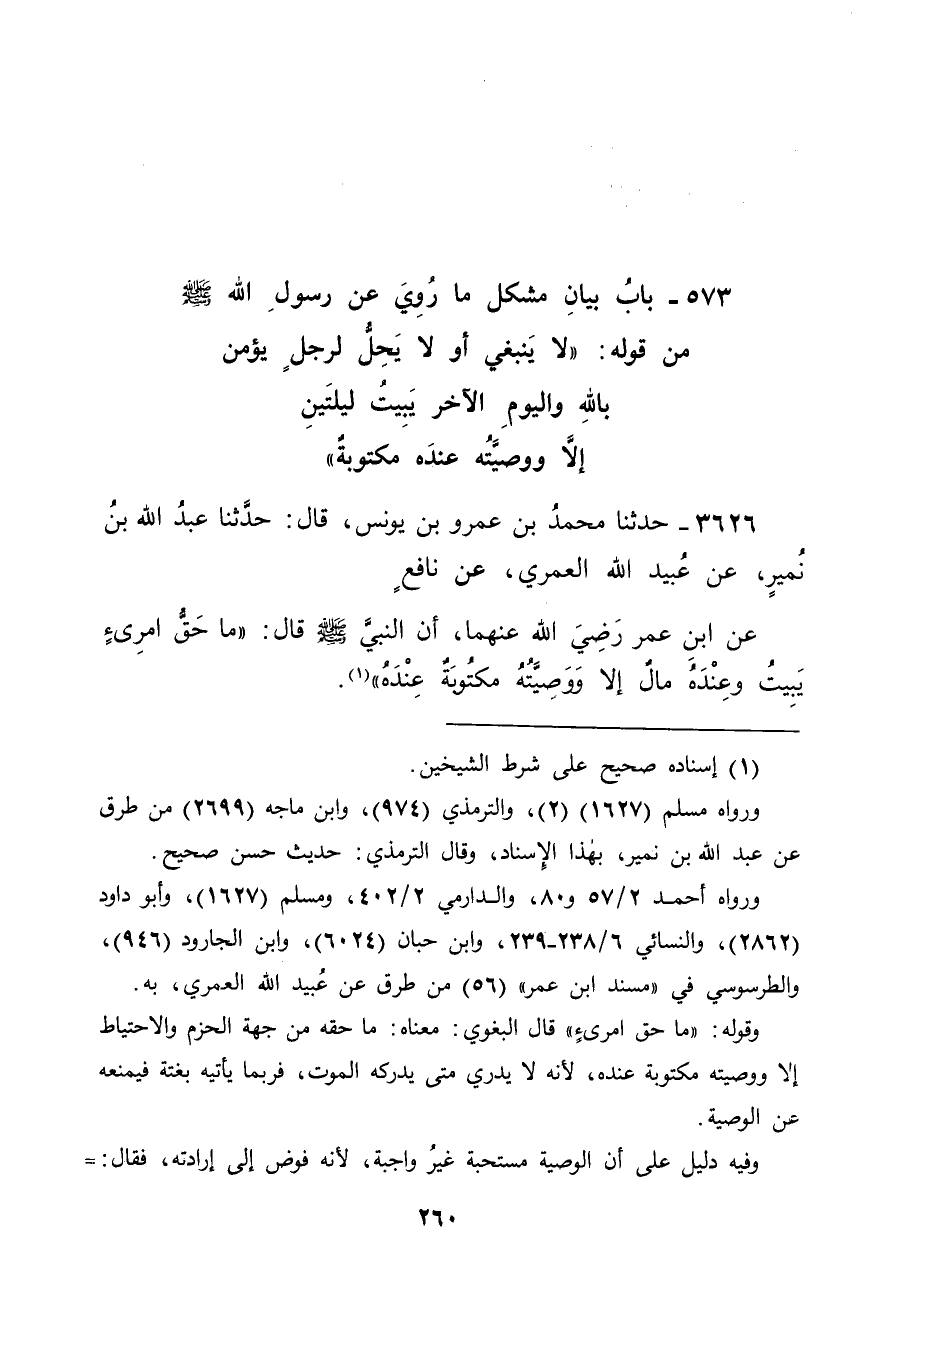 ٥٧٣ ـ بابُ بيانِ مشكل ما رُوِيَ عن رسولِ الله ﷺ
من قوله: «لا يَنبغي أو لا يَحِلُّ لرجلٍ يؤمن
باللهِ واليومِ الآخر يَبِيتُ ليلتَينِ
إلَّا ووصيَّتُه عندَه مكتوبةٌ»
٣٦٢٦ ـ حدثنا محمدُ بن عمرو بن يونس، قال: حدَّثنا عبدُ الله بنُ
نُميرٍ، عن عُبيد الله العمري، عن نافعٍ
عن ابن عمر رَضِيَ الله عنهما، أن النبيَّ ﷺ قال: «ما حَقُّ امرِىءٍ
يَبِيتُ وعِنْدَهُ مالٌ إلا وَوَصِيَّتُهُ مكتُوبَةٌ عِنْدَهُ»(١).
(١) إسناده صحيح على شرط الشيخين.
ورواه مسلم (١٦٢٧) (٢)، والترمذي (٩٧٤)، وابن ماجه (٢٦٩٩) من طرق
عن عبد الله بن نمير، بهٰذا الإسناد، وقال الترمذي: حديث حسن صحيح.
ورواه أحمد ٥٧/٢ و٨٠، والدارمي ٤٠٢/٢، ومسلم (١٦٢٧)، وأبو داود
(٢٨٦٢)، والنسائي ٢٣٨/٦ـ٢٣٩، وابن حبان (٦٠٢٤)، وابن الجارود (٩٤٦)،
والطرسوسي في «مسند ابن عمر» (٥٦) من طرق عن عُبيد الله العمري، به.
وقوله: «ما حق امرىءٍ» قال البغوي: معناه: ما حقه من جهة الحزم والاحتياط
إلا ووصيته مكتوبة عنده، لأنه لا يدري متى يدركه الموت، فربما يأتيه بغتة فيمنعه
عن الوصية.
وفيه دليل على أن الوصية مستحبة غيرُ واجبة، لأنه فوض إلى إرادته، فقال: =
٢٦٠